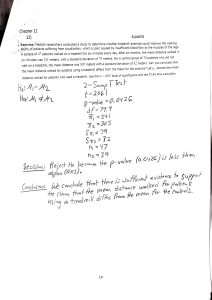 Chapter 11
1)
6 points
Exercise: Medical researchers conducted a study to determine whether treadmill exercise could improve the walking
ability of patients suffering from claudication, which is pain caused by insufficient blood flow to the muscles of the legs.
A sample of 47 patients walked on a treadmill for six minutes every day. After six months, the mean distance walked in
six minutes was 341 meters, with a standard deviation of 79 meters. For a control group of 39 patients who did not
walk on a treadmill, the mean distance was 303 meters with a standard deviation of 82 meters. Can you conclude that
the mean distance walked for patients using a treadmill differs from the mean for the controls?
distance walked for patients who used a treadmill. Use the α = 0.05 level of significance and the TI-84 Plus calculator.
H₀: μ₁ = μ₂
H₁: μ₁ ≠ μ₂
2-SampTTest
t = 2.061
p-value = 0.0426
df = 79.9
x̄₁ = 341
x̄₂ = 303
Sx₁ = 79
Sx₂ = 82
n₁ = 47
n₂ = 39
Decision: Reject H₀ because the p-value (0.0426) is less than
alpha (0.05).
Conclusion: We conclude that there is sufficient evidence to support
the mean distance walked for patients
using a treadmill differs from the mean for the controls.